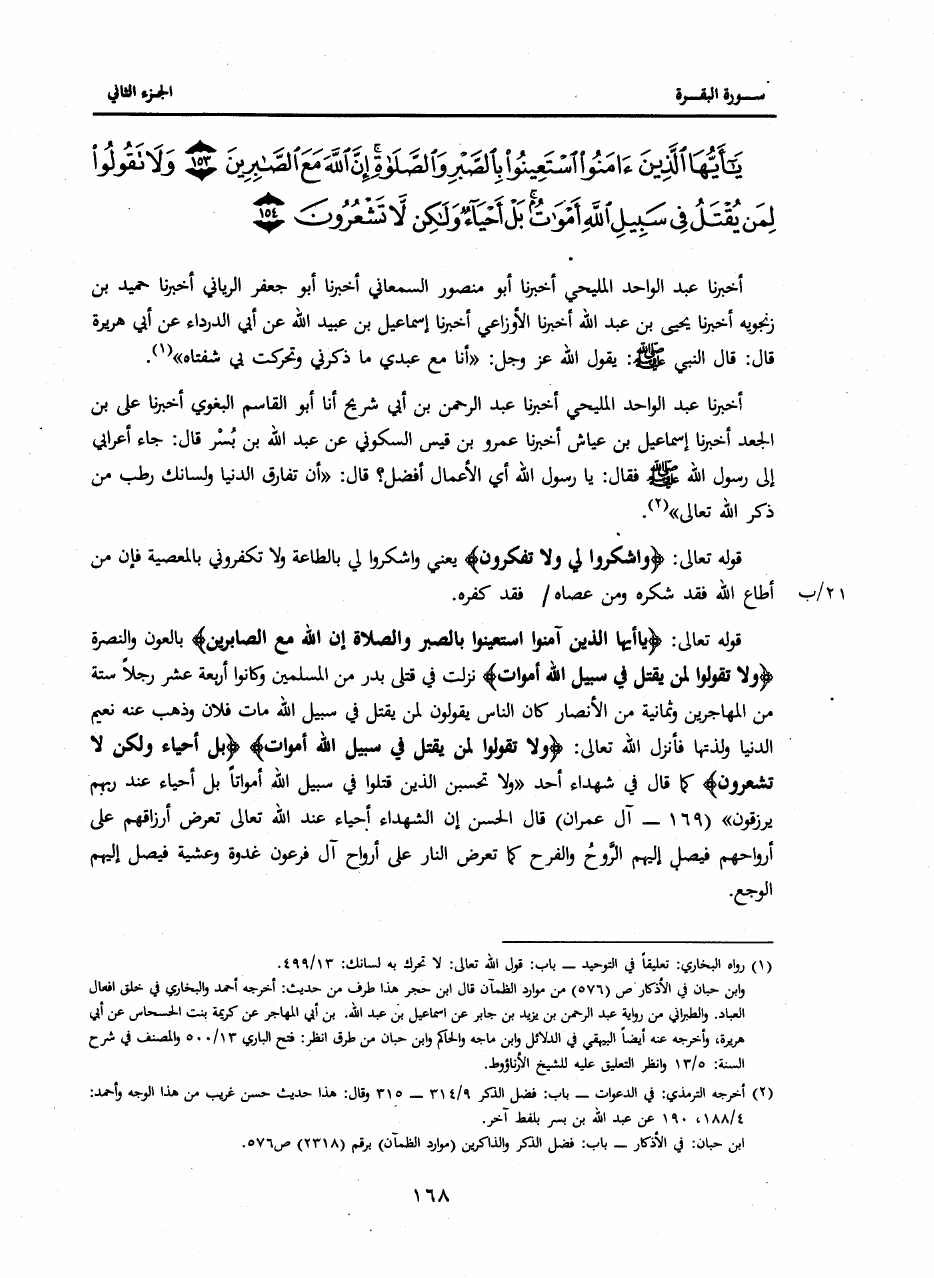 سـورة البقـرة
الجزء الثاني
يَٰٓأَيُّهَا ٱلَّذِينَ ءَامَنُوا۟ ٱسْتَعِينُوا۟ بِٱلصَّبْرِ وَٱلصَّلَوٰةِ ۚ إِنَّ ٱللَّهَ مَعَ ٱلصَّٰبِرِينَ ١٥٣ وَلَا تَقُولُوا۟
لِمَن يُقْتَلُ فِى سَبِيلِ ٱللَّهِ أَمْوَٰتٌۢ ۚ بَلْ أَحْيَآءٌ وَلَٰكِن لَّا تَشْعُرُونَ ١٥٤
أخبرنا عبد الواحد المليحي أخبرنا أبو منصور السمعاني أخبرنا أبو جعفر الرياني أخبرنا حميد بن
زنجويه أخبرنا يحيى بن عبد الله أخبرنا الأوزاعي أخبرنا إسماعيل بن عبيد الله عن أبي الدرداء عن أبي هريرة
قال: قال النبي ﷺ: يقول الله عز وجل: «أنا مع عبدي ما ذكرني وتحركت بي شفتاه»(١).
أخبرنا عبد الواحد المليحي أخبرنا عبد الرحمن بن أبي شريح أنا أبو القاسم البغوي أخبرنا على بن
الجعد أخبرنا إسماعيل بن عياش أخبرنا عمرو بن قيس السكوني عن عبد الله بن بُسْر قال: جاء أعرابي
إلى رسول الله ﷺ فقال: يا رسول الله أي الأعمال أفضل؟ قال: «أن تفارق الدنيا ولسانك رطب من
ذكر الله تعالى»(٢).
قوله تعالى: ﴿واشكروا لي ولا تفكرون﴾ يعني واشكروا لي بالطاعة ولا تكفروني بالمعصية فإن من
أطاع الله فقد شكره ومن عصاه/ فقد كفره.
٢١/ب
قوله تعالى: ﴿ياأيها الذين آمنوا استعينوا بالصبر والصلاة إن الله مع الصابرين﴾ بالعون والنصرة
﴿ولا تقولوا لمن يقتل في سبيل الله أموات﴾ نزلت في قتلى بدر من المسلمين وكانوا أربعة عشر رجلاً ستة
من المهاجرين وثمانية من الأنصار كان الناس يقولون لمن يقتل في سبيل الله مات فلان وذهب عنه نعيم
الدنيا ولذتها فأنزل الله تعالى: ﴿ولا تقولوا لمن يقتل في سبيل الله أموات﴾ ﴿بل أحياء ولكن لا
تشعرون﴾ كما قال في شهداء أحد «ولا تحسبن الذين قتلوا في سبيل الله أمواتاً بل أحياء عند ربهم
يرزقون» (١٦٩ ــ آل عمران) قال الحسن إن الشهداء أحياء عند الله تعالى تعرض أرزاقهم على
أرواحهم فيصل إليهم الرَّوحُ والفرح كما تعرض النار على أرواح آل فرعون غدوة وعشية فيصل إليهم
الوجع.
(١) رواه البخاري: تعليقاً في التوحيد ــ باب: قول الله تعالى: لا تحرك به لسانك: ٤٩٩/١٣.
وابن حبان في الأذكار ص (٥٧٦) من موارد الظمآن قال ابن حجر هذا طرف من حديث: أخرجه أحمد والبخاري في خلق افعال
العباد. والطبراني من رواية عبد الرحمن بن يزيد بن جابر عن اسماعيل بن عبد الله. بن أبي المهاجر عن كريمة بنت الحسحاس عن أبي
هريرة، وأخرجه عنه أيضاً البيهقي في الدلائل وابن ماجه والحاكم وابن حبان من طرق انظر: فتح الباري ٥٠٠/١٣ والمصنف في شرح
السنة: ١٣/٥ وانظر التعليق عليه للشيخ الأرناؤوط.
(٢) أخرجه الترمذي: في الدعوات ــ باب: فضل الذكر ٣١٤/٩ ــ ٣١٥ وقال: هذا حديث حسن غريب من هذا الوجه وأحمد:
١٨٨/٤، ١٩٠ عن عبد الله بن بسر بلفط آخر.
ابن حبان: في الأذكار ــ باب: فضل الذكر والذاكرين (موارد الظمآن) برقم (٢٣١٨) ص٥٧٦.
١٦٨